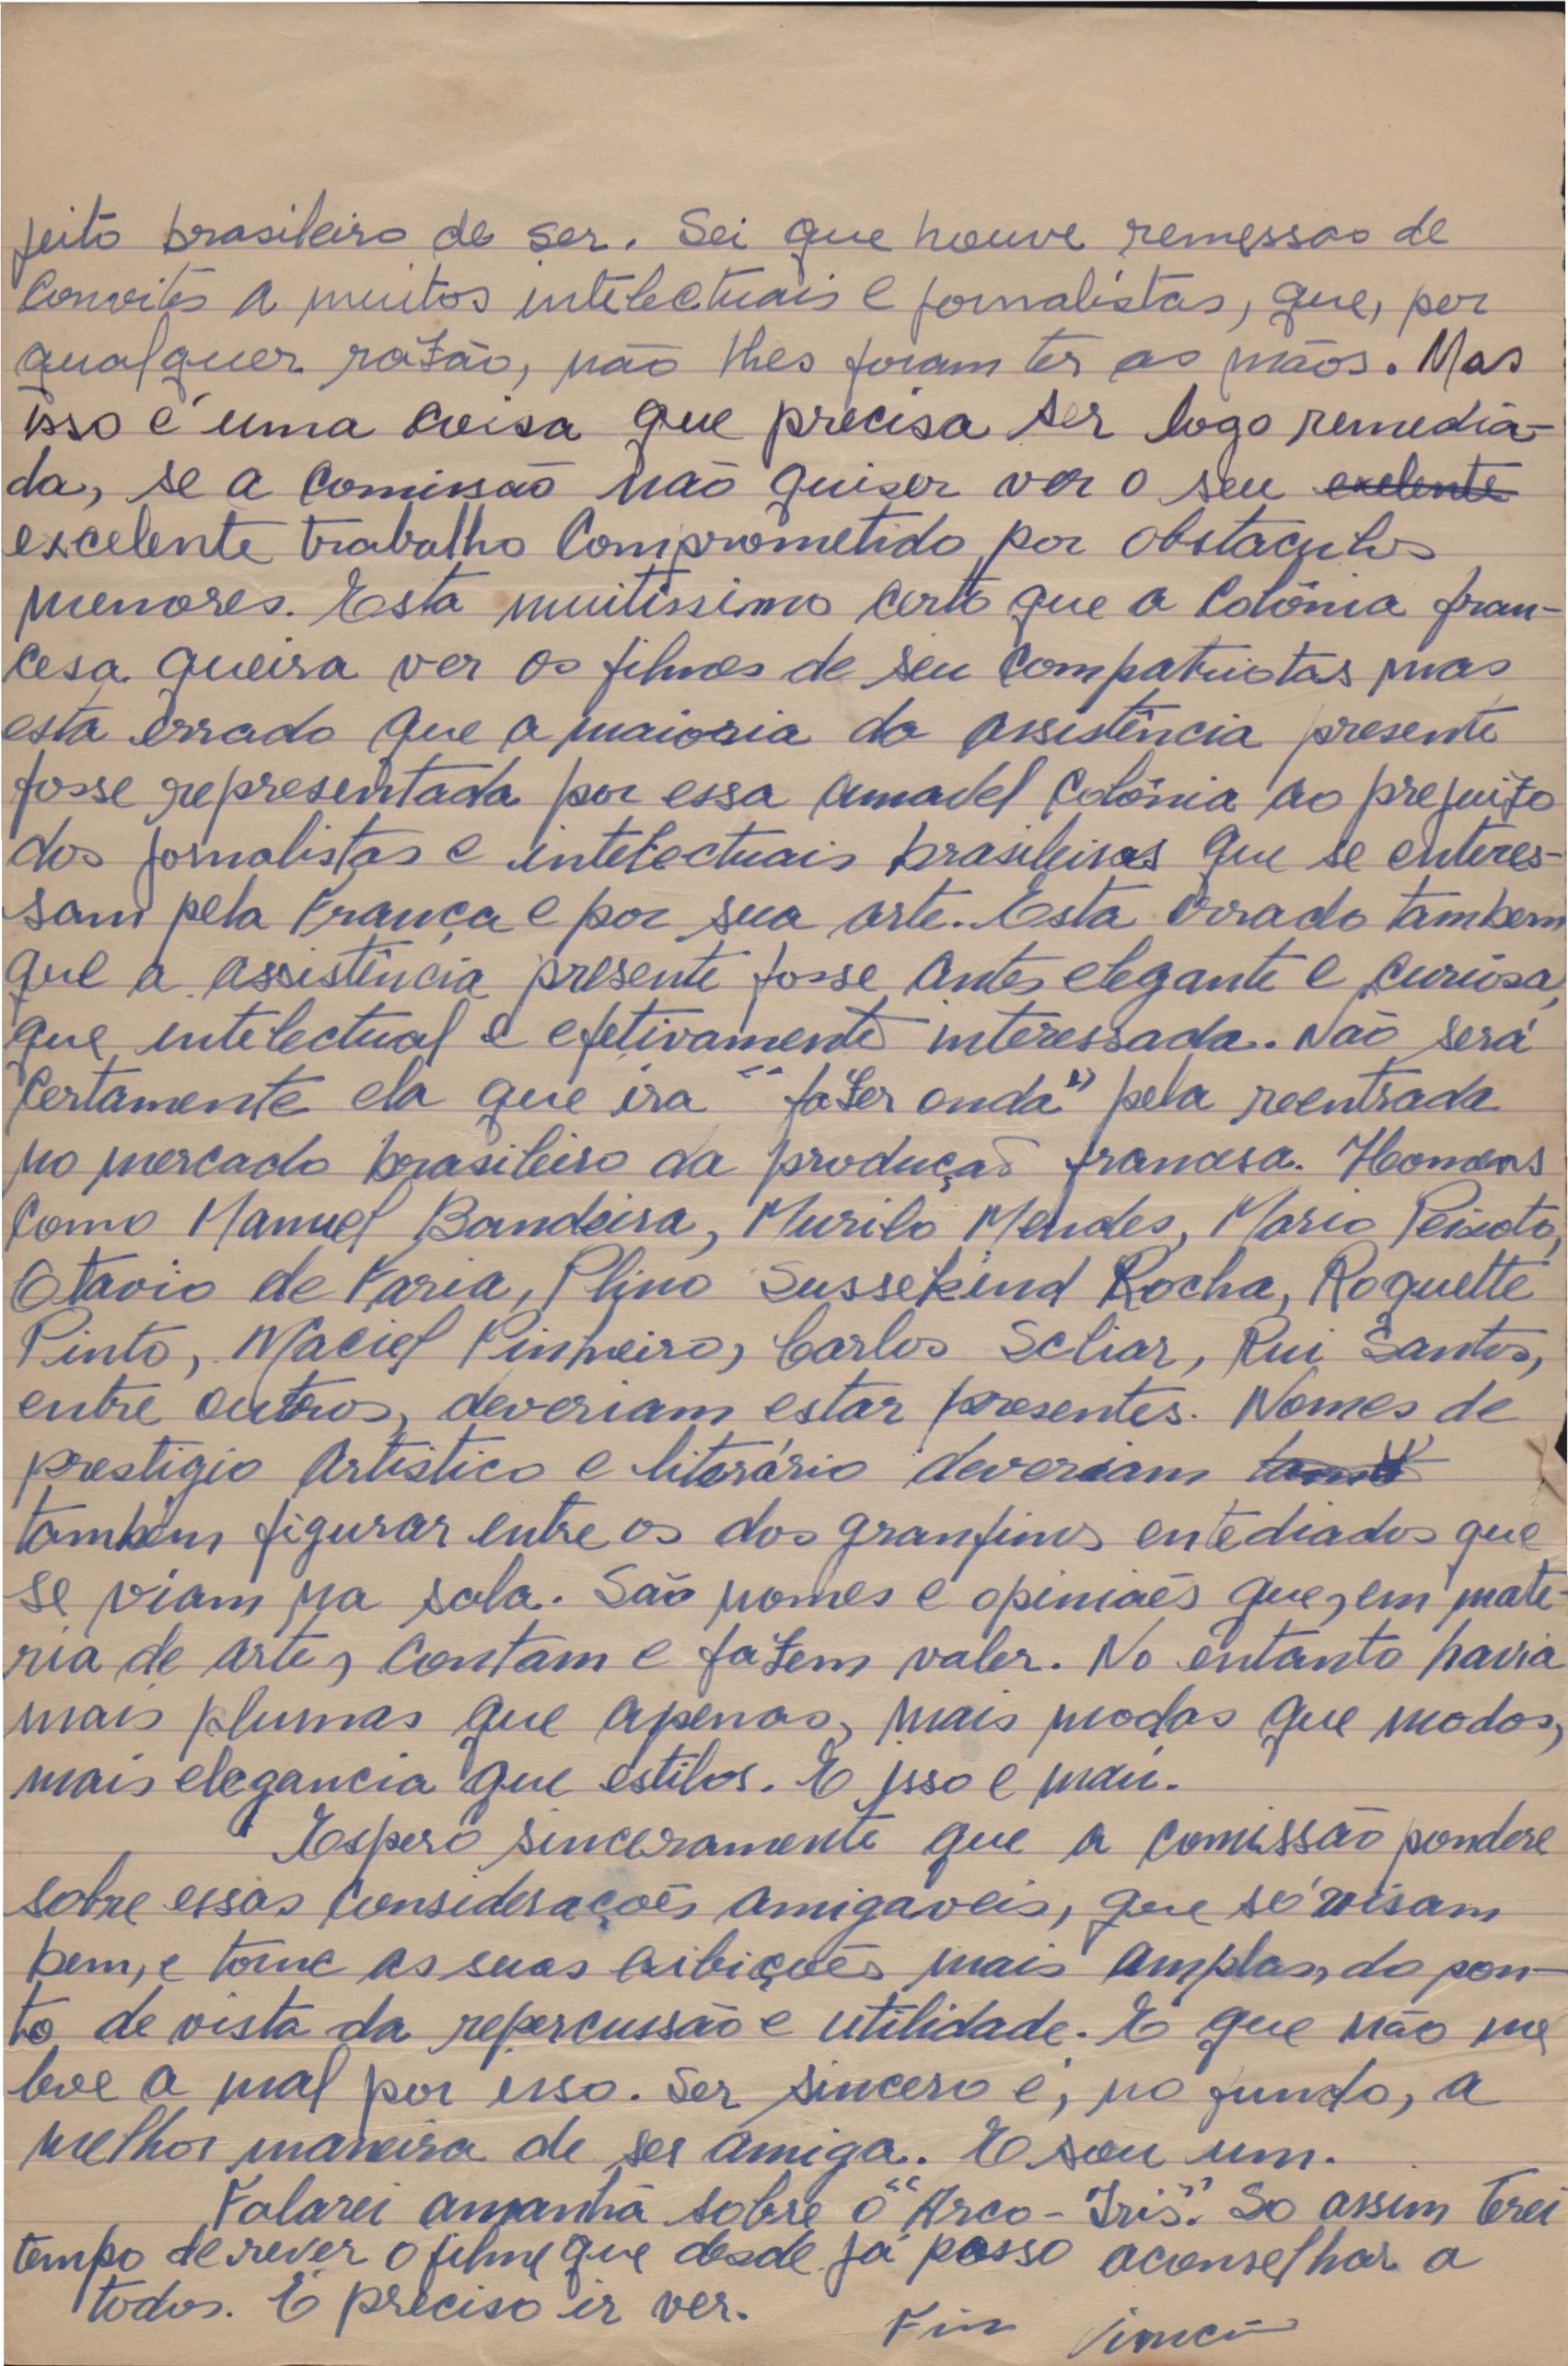 jeito brasileiro de ser. Sei que houve remessas de
convites a muitos intelectuais e jornalistas, que, por
qualquer razão, não lhes foram ter as mãos. Mas
isso é uma coisa que precisa ser logo remedia-
da, se a comissão não quiser ver o seu exelente
excelente trabalho comprometido por obstaculos
menores. Esta muitissimo certo que a colônia fran-
cesa queira ver os filmes de seu compatriotas mas
está errado que a maioria da assistência presente
fosse representada por essa amavel colônia ao prejuizo
dos jornalistas e intelectuais brasileiros que se enteres-
sam pela França e por sua arte. Esta errado tambem
que a assistência presente fosse antes elegante e curiosa,
que intelectual e efetivamente interessada. Não será
certamente ela que ira "fazer onda" pela reentrada
no mercado brasileiro da produção francesa. Homens
como Manuel Bandeira, Murilo Mendes, Mario Peixoto,
Otavio de Faria, Plino Sussekind Rocha, Roquette
Pinto, Maciel Pinheiro, Carlos Scliar, Rui Santos,
entre outros, deveriam estar presentes. Nomes de
prestigio artistico e literário deveriam
também figurar entre os dos granfinos entediados que
se viam na sala. São nomes e opiniões que, em maté-
ria de arte, contam e fazem valer. No entanto havia
mais plumas que apenas, mais modas que modos,
mais elegancia que estilos. E isso e mau.
Espero sinceramente que a comissão pondere
sobre essas considerações amigaveis, que só visam
bem, e torne as suas exibições mais amplas, do pon-
to de vista da repercussão e utilidade. E que não me
leve a mal por isso. Ser sincero é, no fundo, a
melhor maneira de ser amiga. E sou um.
Falarei amanhã sobre o "Arco-Iris". So assim terei
tempo de rever o filme que desde já posso aconselhar a
todos. É preciso ir ver.
Fim